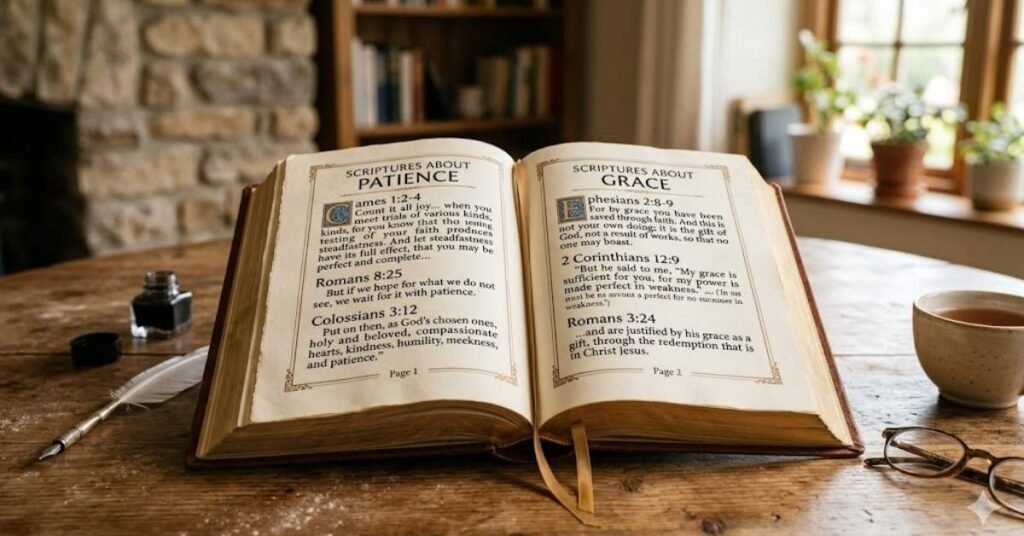 SCRIPTURES ABOUT
PATIENCE
Cames 1:2-4
Count it all joy... when you
meet trials of various kinds,
kinds, for you know that the
testing of your faith produces
steadfastness. And let steadfastness
have its full effect, that you may be
perfect and complete...
Romans 8:25
But if we hope for what we do not
see, we wait for it with patience.
Colossians 3:12
Put on then, as God's chosen ones,
holy and beloved, compassionate
hearts, kindness, humility, meekness,
and patience."
Page 1
SCRIPTURES ABOUT
GRACE
Ephesians 2:8-9
For by grace you have been
saved through faith. And this is
not your own doing; it is the gift of
God, not a result of works, so that no
one may boast.
2 Corinthians 12:9
"But he said to me, "My grace is
sufficient for you, for my power is
made perfect in weakness." ... (In
must be a perfect for no
weakness.")
Romans 3:24
...and are justified by his grace as a
gift, through the redemption that is
in Christ Jesus.
Page 2